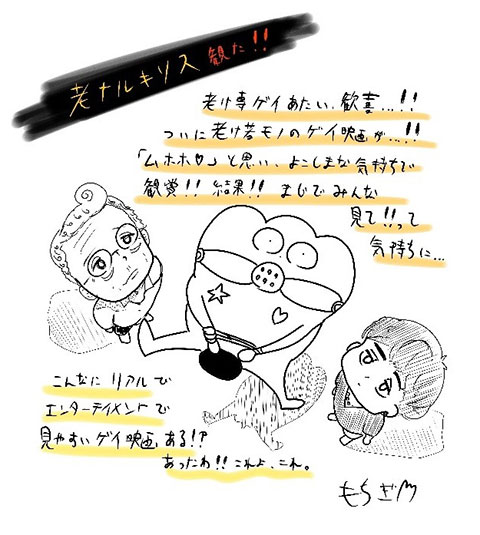 老ナルキソス 観た!!
老け専ゲイあたい、歓喜…!!
ついに老け若モノのゲイ映画が…!!
「ムホホ♡」と思い、よこしまな気持ちで
観賞!! 結果!! まじでみんな
見て!!って
気持ちに…
こんなに リアルで
エンターテイメントで
見やすいゲイ映画、ある!?
あったわ!! これよ、これ。
もちぎ